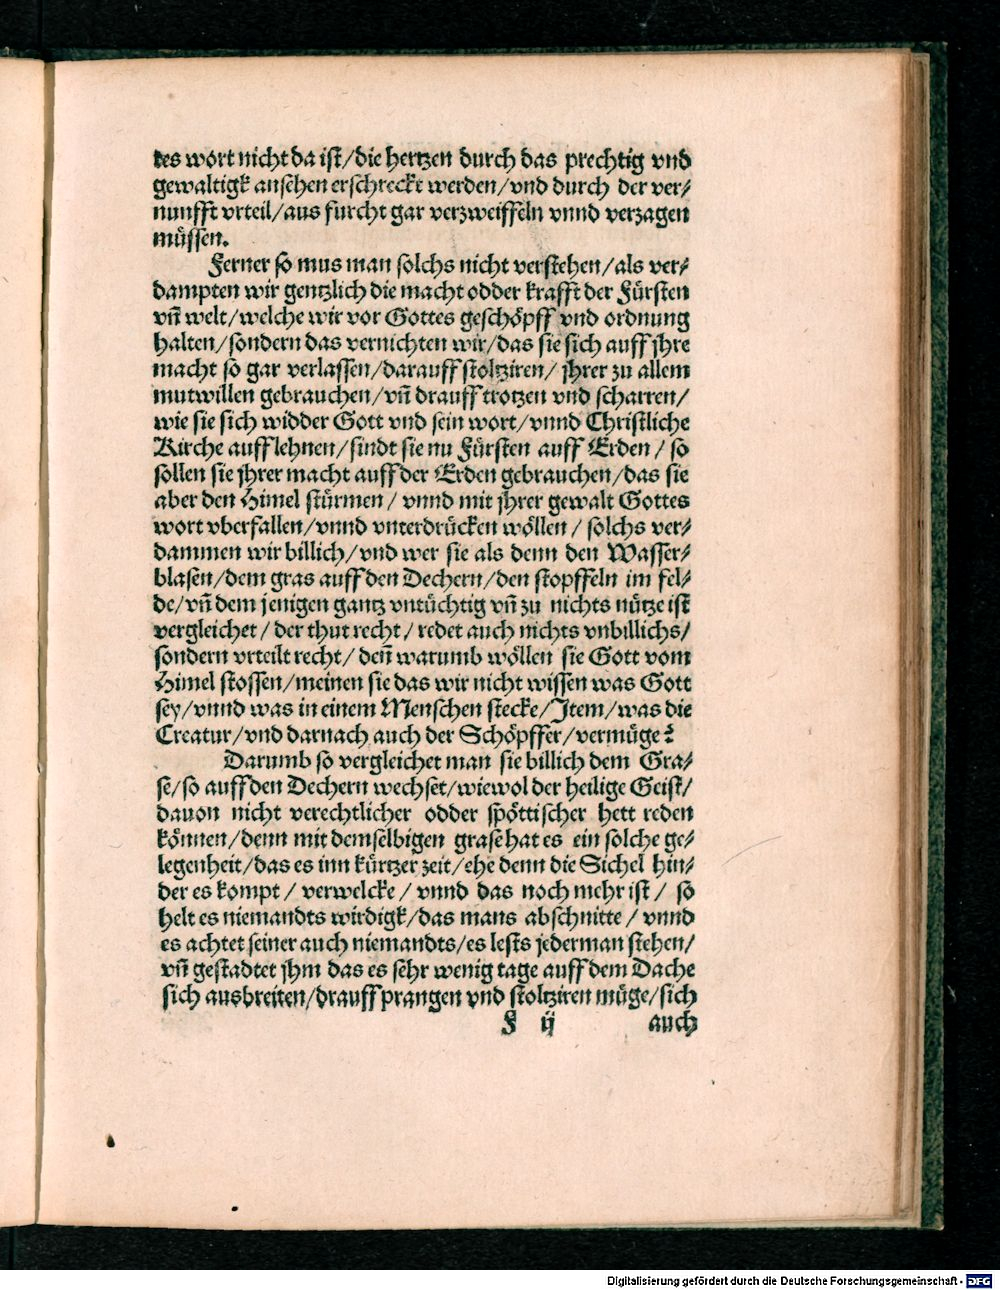 tes wort nicht da ist/die hertzen durch das prechtig vnd
gewaltigk ansehen erschreckt werden/vnd durch der ver-
nunfft vrteil/aus furcht gar verzweiffeln vnnd verzagen
müssen.
Ferner so mus man solchs nicht verstehen/als ver-
dampten wir gentzlich die macht odder krafft der Fürsten
vñ welt/welche wir vor Gottes geschöpff vnd ordnung
halten/sondern das vernichten wir/das sie sich auff jhre
macht so gar verlassen/darauff stoltziren/jhrer zu allem
mutwillen gebrauchen/vñ drauff trotzen vnd scharren/
wie sie sich widder Gott vnd sein wort/vnnd Christliche
Kirche aufflehnen/sindt sie nu Fürsten auff Erden/so
sollen sie jhrer macht auff der Erden gebrauchen/das sie
aber den Himel stürmen/vnnd mit jhrer gewalt Gottes
wort vberfallen/vnnd vnterdrücken wöllen/solchs ver-
dammen wir billich/vnd wer sie als denn den Wasser-
blasen/dem gras auff den Dechern/den stopffeln im fel-
de/vñ dem jenigen gantz vntüchtig vñ zu nichts nütze ist
vergleichet/der thut recht/redet auch nichts vnbillichs/
sondern vrteilt recht/deñ warumb wöllen sie Gott vom
Himel stossen/meinen sie das wir nicht wissen was Gott
sey/vnnd was in einem Menschen stecke/Item/was die
Creatur/vnd darnach auch der Schöpffer/vermüge?
Darumb so vergleichet man sie billich dem Gra-
se/so auff den Dechern wechset/wiewol der heilige Geist/
dauon nicht verechtlicher odder spöttischer hett reden
können/denn mit demselbigen grase hat es ein solche ge-
legenheit/das es inn kürtzer zeit/ehe denn die Sichel hin-
der es kompt/verwelcke/vnnd das noch mehr ist/so
helt es niemandts wirdigk/das mans abschnitte/vnnd
es achtet seiner auch niemandts/es lests jederman stehen/
vñ gestadtet jhm das es sehr wenig tage auff dem Dache
sich ausbreiten/drauff prangen vnd stoltziren müge/sich
F ij auch
Digitalisierung gefördert durch die Deutsche Forschungsgemeinschaft - DFG